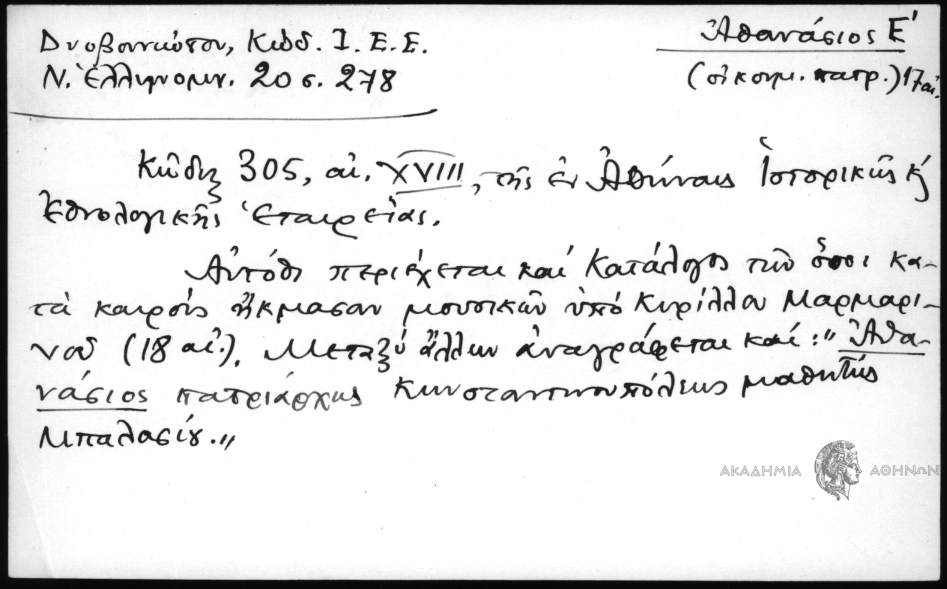 Δυοβουνιώτου, Κώδ. Ι. Ε. Ε.
Ν. Ἑλληνομν. 20 σ. 278
Ἀθανάσιος Ε'
(οἰκουμ. πατρ.) 17 αἰ.
Κῶδιξ 305, αἰ. XVIII, τῆς ἐν Ἀθήναις Ἱστορικῆς κ'
Ἐθνολογικῆς Ἑταιρείας.
Αὐτόθι περιέχεται καί Κατάλογος τῶν ὅσοι κα-
τὰ καιρούς ἤκμασαν μουσικῶν ὑπό Κυρίλλου Μαρμαρι-
νοῦ (18 αἰ.). Μεταξύ ἄλλων ἀναγράφεται καί: „Ἀθα-
νάσιος πατριάρχης Κωνσταντινουπόλεως μαθητής
Μπαλασίου.„
ΑΚΑΔΗΜΙΑ ΑΘΗΝΩΝ